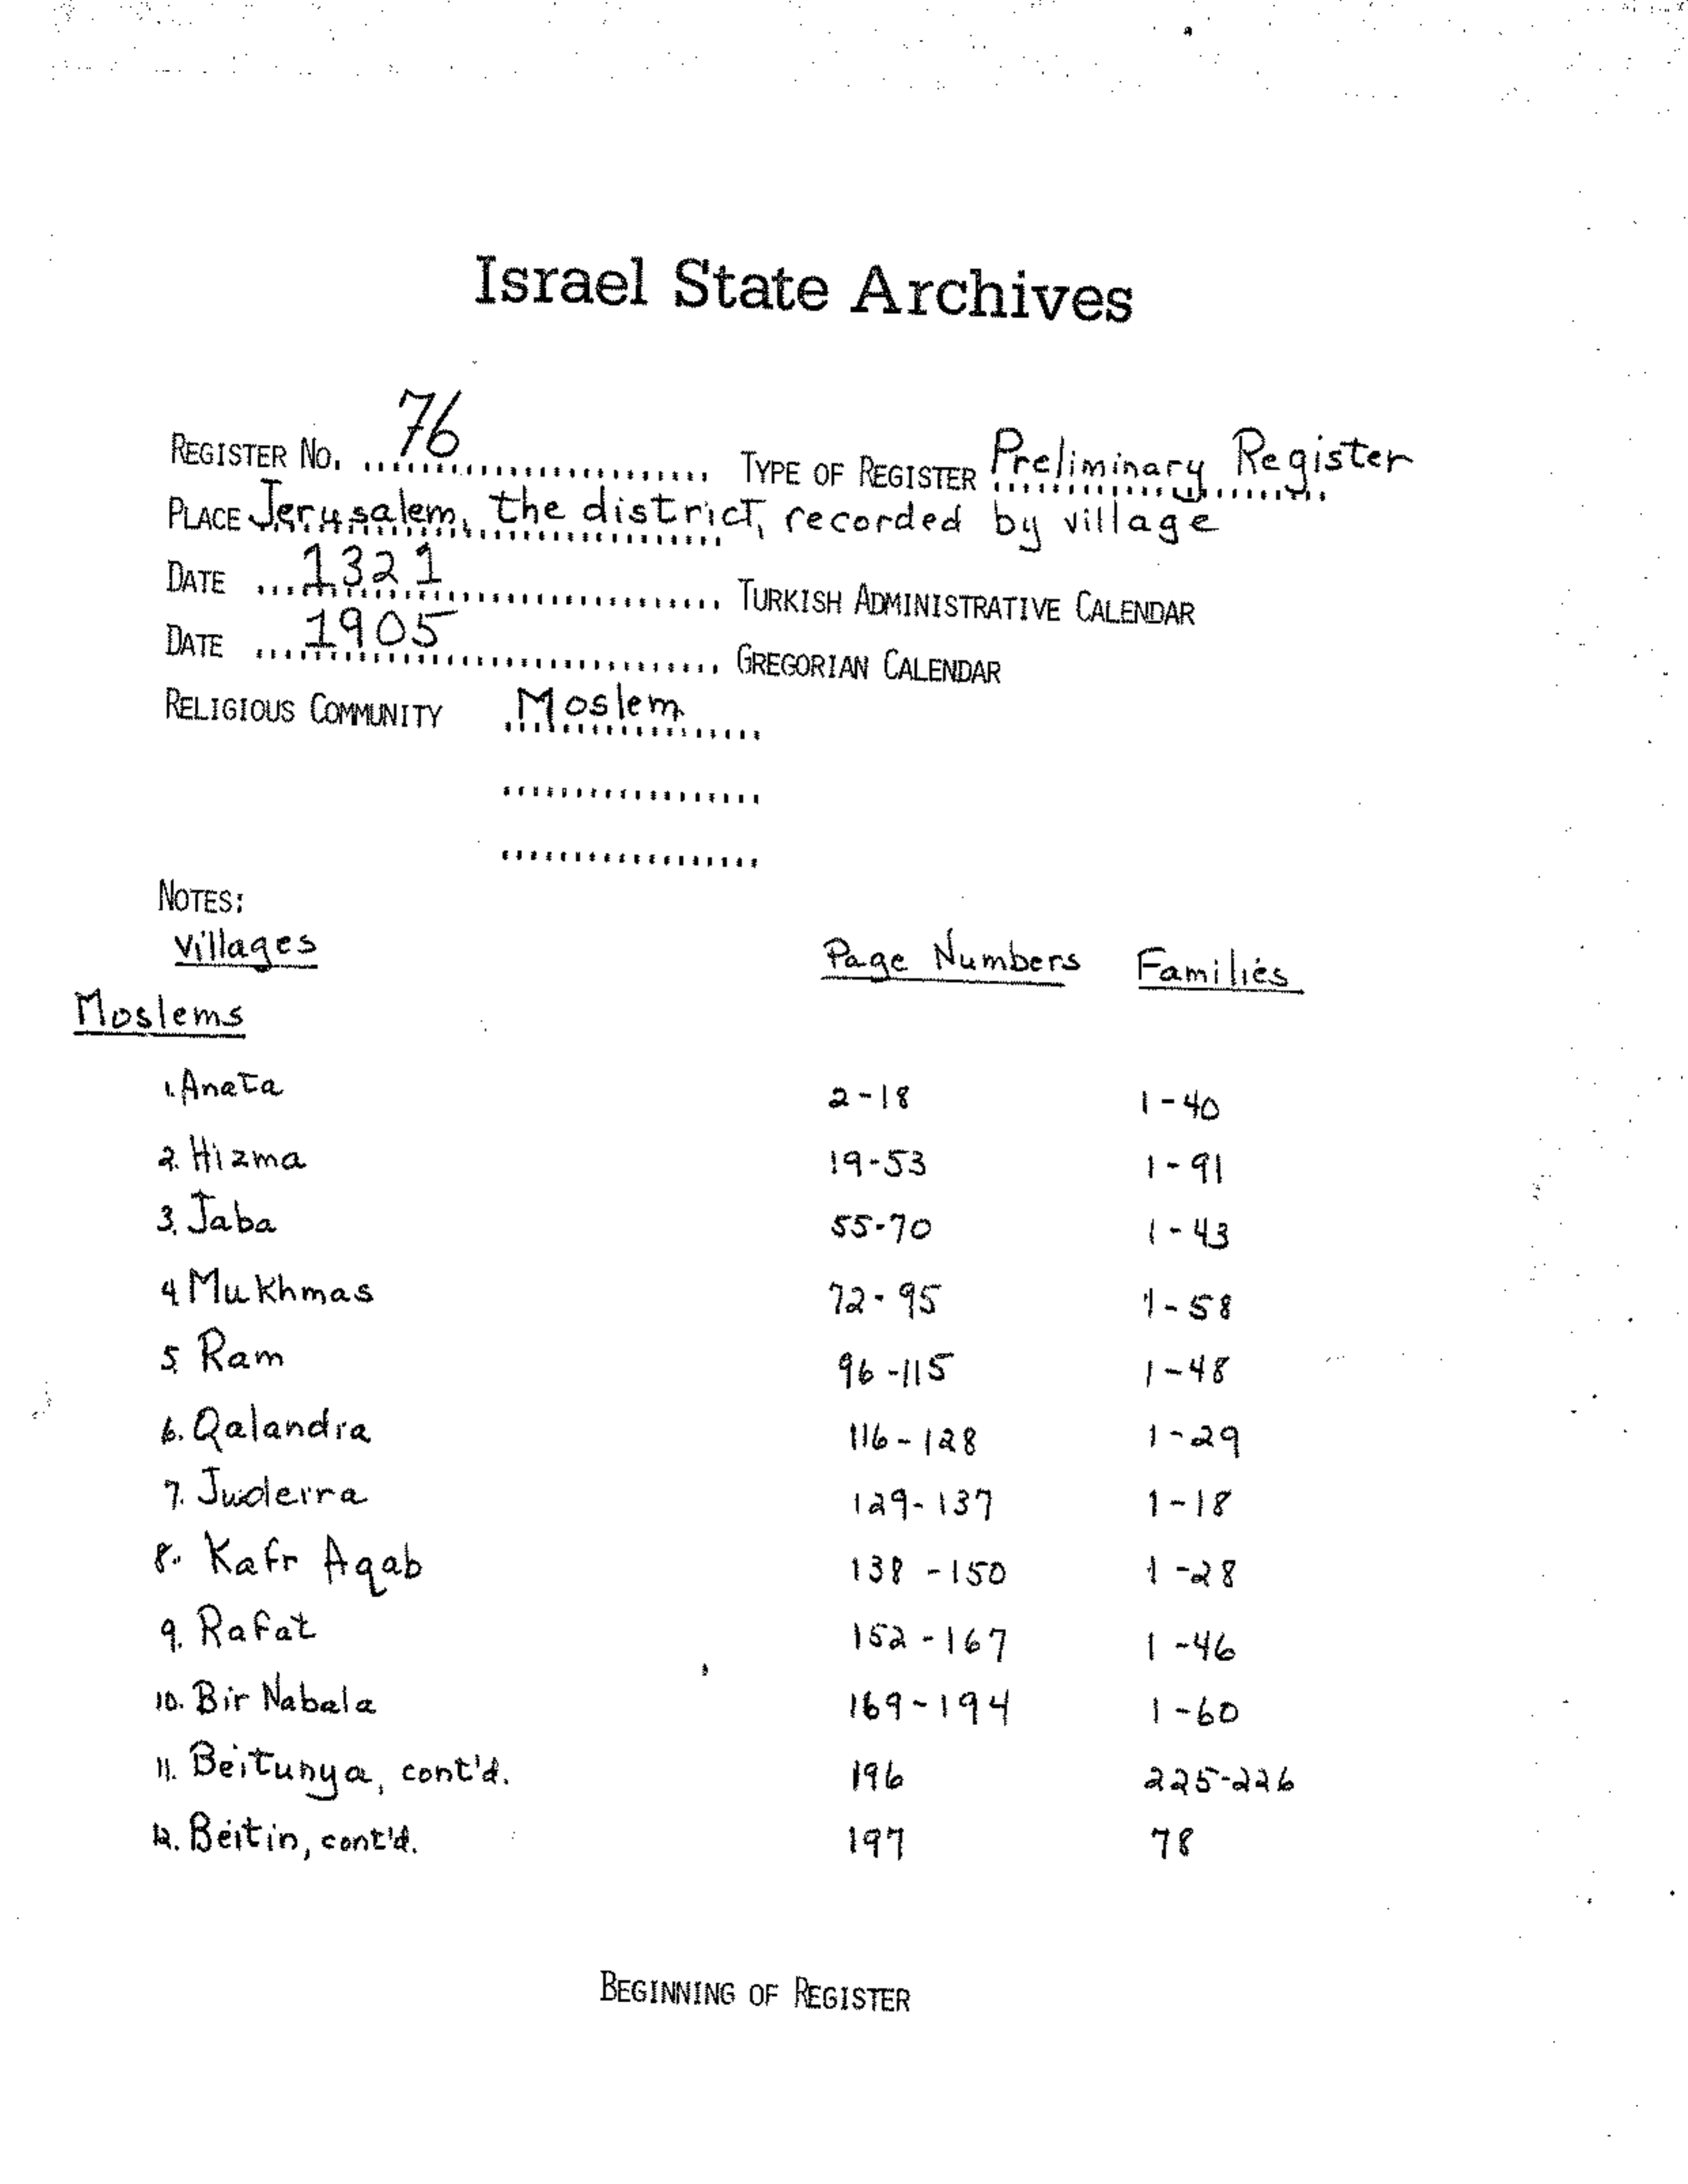 Israel State Archives
REGISTER NO. 76 TYPE OF REGISTER Preliminary Register
PLACE Jerusalem, the district, recorded by village
DATE 1321 TURKISH ADMINISTRATIVE CALENDAR
DATE 1905 GREGORIAN CALENDAR
RELIGIOUS COMMUNITY Moslem
NOTES:
Villages Page Numbers Families
Moslems
1. Anata 2-18 1-40
2. Hizma 19-53 1-91
3. Jaba 55-70 1-43
4 Mukhmas 72-95 1-58
5. Ram 96-115 1-48
6. Qalandia 116-128 1-29
7. Judeira 129-137 1-18
8. Kafr Aqab 138-150 1-28
9. Rafat 152-167 1-46
10. Bir Nabala 169-194 1-60
11. Beitunya, cont'd. 196 225-226
12. Beitin, cont'd. 197 78
BEGINNING OF REGISTER